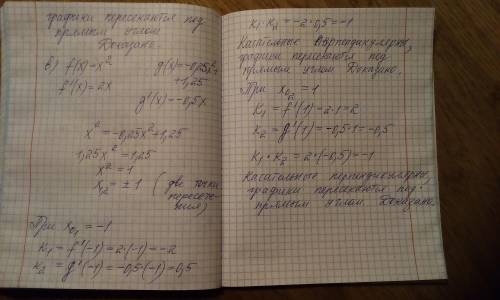 графики пересекаются под
прямым углом
Доказано.
в) f(x)=x² g(x)=-0,25x²+
+1,25
f'(x)=2x
g'(x)=-0,5x
x²=-0,25x²+1,25
1,25x²=1,25
x²=1
x₁,₂=±1 (две точки
пересече-
ния)
При x₀₁=-1
k₁=f'(-1)=2·(-1)=-2
k₂=g'(-1)=-0,5·(-1)=0,5
k₁·k₂=-2·0,5=-1
Касательные перпендикулярны,
графики пересекаются под
прямым углом Доказано.
При x₀₂=1
k₁=f'(1)=2·1=2
k₂=g'(1)=-0,5·1=-0,5
k₁·k₂=2·(-0,5)=-1
Касательные перпендикулярны,
графики пересекаются под
прямым углом. Доказано.